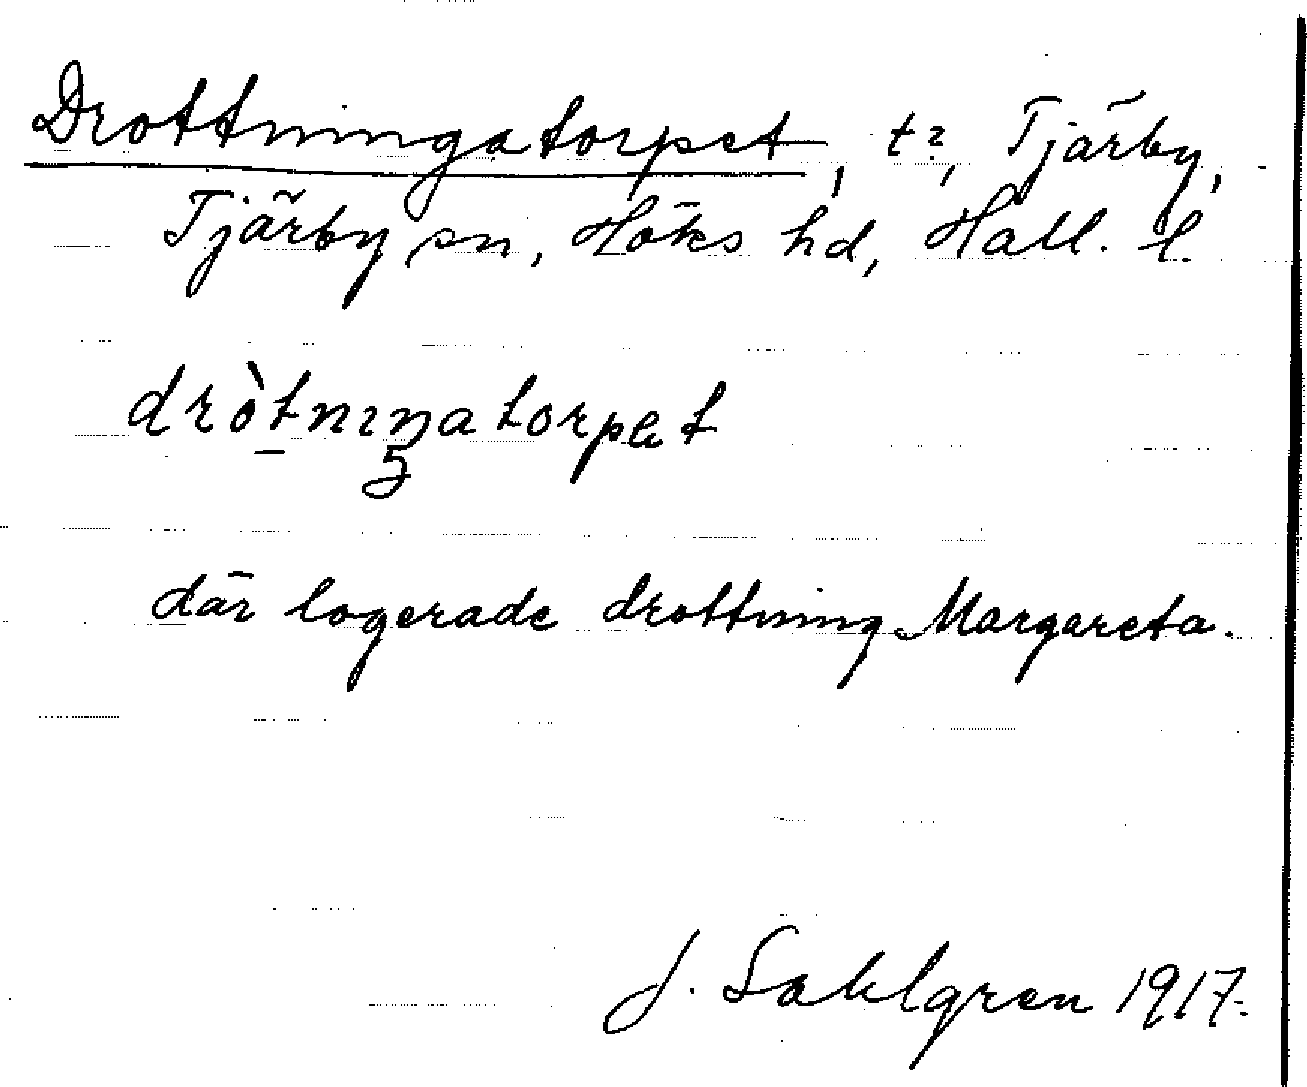 Drottningatorpet, t?, Tjärby,
Tjärby sn, Höks hd, Hall. l.
drò̠tnıŋatorpət
där logerade drottning Margareta.
J. Sahlgren 1917.